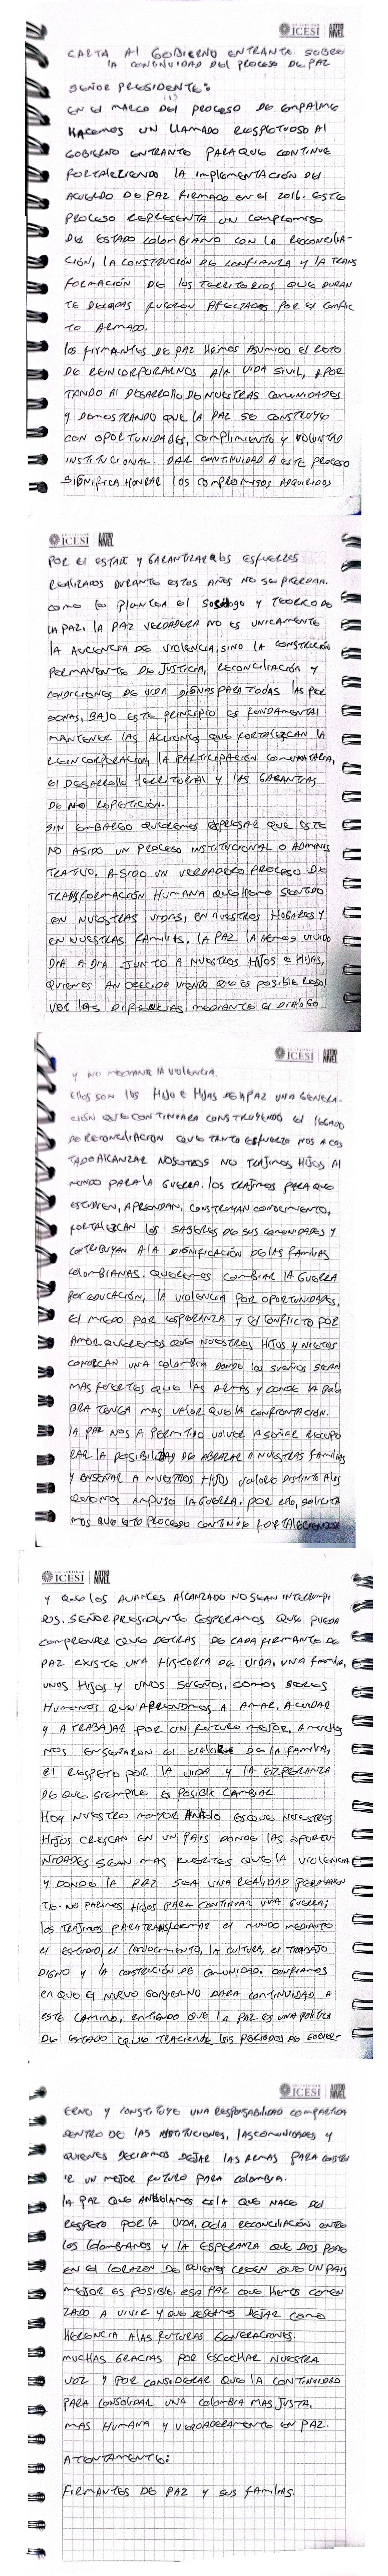 UNIVERSIDAD
ICESI
CARTA AL GOBIERNO ENTRANTE SOBRE
LA CONTINUIDAD DEL PROCESO DE PAZ
SEÑOR PRESIDENTE:
EN EL MARCO DEL PROCESO DE EMPALME
HACEMOS UN LLAMADO RESPETUOSO AL
GOBIERNO ENTRANTE PARA QUE CONTINUE
FORTALECIENDO LA IMPLEMENTACIÓN DEL
ACUERDO DE PAZ FIRMADO EN EL 2016. ESTE
PROCESO REPRESENTA UN COMPROMISO
DEL ESTADO COLOMBIANO CON LA RECONCILIA-
CIÓN, LA CONSTRUCCIÓN DE CONFIANZA Y LA TRANS
FORMACIÓN DE LOS TERRITORIOS QUE DURAN
TE DECADAS FUERON AFECTADOS POR EL CONFLIC
TO ARMADO.
LOS FIRMANTES DE PAZ HEMOS ASUMIDO EL RETO
DE REINCORPORARNOS A LA VIDA SIVIL, APOR
TANDO AL DESARROLLO DE NUESTRAS COMUNIDADES
Y DEMOSTRANDO QUE LA PAZ SE CONSTRUYE
CON OPORTUNIDADES, CUMPLIMIENTO Y VOLUNTAD
INSTITUCIONAL. DAR CONTINUIDAD A ESTE PROCESO
SIGNIFICA HONRAR LOS COMPROMISOS ADQUIRIDOS
UNIVERSIDAD
ICESI
POR EL ESTADO Y GARANTIZAR QUE LOS ESFUERZOS
REALIZADOS DURANTE ESTOS AÑOS NO SE PIERDAN.
COMO LO PLANTEA EL SOCIÓLOGO Y TEORICO DE
LA PAZ, LA PAZ VERDADERA NO ES UNICAMENTE
LA AUCENCIA DE VIOLENCIA, SINO LA CONSTRUCIÓN
PERMANENTE DE JUSTICIA, RECONCILIACIÓN Y
CONDICIONES DE VIDA DIGNAS PARA TODAS LAS PER
SONAS, BAJO ESTE PRINCIPIO ES FUNDAMENTAL
MANTENER LAS ACCIONES QUE FORTALEZCAN LA
REINCORPORACION, LA PARTICIPACIÓN COMUNITARIA,
EL DESARROLLO TERRITORIAL Y LAS GARANTIAS
DE NO REPETICIÓN.
SIN EMBARGO QUEREMOS EXPRESAR QUE ESTE
NO ASIDO UN PROCESO INSTITUCIONAL O ADMINIS
TRATIVO, A SIDO UN VERDADERO PROCESO DE
TRANSFORMACIÓN HUMANA QUE HEMO SENTIDO
EN NUESTRAS VIDAS, EN NUESTROS HOGARES Y
EN NUESTRAS FAMILIAS. LA PAZ LA HEMOS VIVIDO
DIA A DIA JUNTO A NUESTROS HIJOS E HIJAS,
QUIENES AN CRECIDO VIENDO QUE ES POSIBLE RESOL
VER LAS DIFERENCIAS MEDIANTE EL DIALOGO
UNIVERSIDAD
ICESI
Y NO MEDIANTE LA VIOLENCIA.
ELLOS SON LOS HIJO E HIJAS DE LA PAZ UNA GENERA-
CIÓN QUE CONTINUARA CONSTRUYENDO EL LEGADO
DE RECONCILIACION QUE TANTO ESFUERZO NOS A COS
TADO ALCANZAR NOSOTROS NO TRAJIMOS HIJOS AL
MUNDO PARA LA GUERRA. LOS TRAJIMOS PARA QUE
ESTUDIEN, APRENDAN, CONSTRUYAN CONOCIMIENTO,
FORTALEZCAN LOS SABERES DE SUS COMUNIDADES Y
CONTRIBUYAN A LA DIGNIFICACIÓN DE LAS FAMILIAS
COLOMBIANAS. QUEREMOS CAMBIAR LA GUERRA
POR EDUCACIÓN, LA VIOLENCIA POR OPORTUNIDADES,
EL MIEDO POR ESPERANZA Y EL CONFLICTO POR
AMOR. QUEREMOS QUE NUESTROS HIJOS Y NIETOS
CONOZCAN UNA COLOMBIA DONDE LOS SUEÑOS SEAN
MAS FUERTES QUE LAS ARMAS Y DONDE LA PALA
BRA TENGA MAS VALOR QUE LA CONFRONTACIÓN.
LA PAZ NOS A PERMITIDO VOLVER A SOÑAR RECUPE
RAR LA POSIBILIDAD DE ABRAZAR A NUESTRAS FAMILIAS
Y ENSEÑAR A NUESTROS HIJOS VALORES DISTINTO A LOS
QUE NOS IMPUSO LA GUERRA. POR ELLO, SOLICITA
MOS QUE ESTE PROCESO CONTINÚE FORTALECIENDOSE
UNIVERSIDAD
ICESI
Y QUE LOS AVANCES ALCANZADO NO SEAN INTERRUMPI
DOS. SEÑOR PRESIDENTE ESPERAMOS QUE PUEDA
COMPRENDER QUE DETRAS DE CADA FIRMANTE DE
PAZ EXISTE UNA HISTORIA DE VIDA, UNA FAMILIA,
UNOS HIJOS Y UNOS SUEÑOS, SOMOS SERES
HUMANOS QUE APRENDIMOS A AMAR, A CUIDAR
Y A TRABAJAR POR UN FUTURO MEJOR, A MUCHOS
NOS ENSEÑARON EL VALOR DE LA FAMILIA,
EL RESPETO POR LA VIDA Y LA ESPERANZA
DE QUE SIEMPRE ES POSIBLE CAMBIAR
HOY NUESTRO MAYOR ANELO ES QUE NUESTROS
HIJOS CRESCAN EN UN PAIS DONDE LAS OPORTU-
NIDADES SEAN MAS FUERTES QUE LA VIOLENCIA
Y DONDE LA PAZ SEA UNA REALIDAD PERMANEN
TE. NO PARIMOS HIJOS PARA CONTINUAR UNA GUERRA;
LOS TRAJIMOS PARA TRANSFORMAR EL MUNDO MEDIANTE
EL ESTUDIO, EL CONOCIMIENTO, LA CULTURA, EL TRABAJO
DIGNO Y LA CONSTRUCIÓN DE COMUNIDAD. CONFIAMOS
EN QUE EL NUEVO GOBIERNO DARA CONTINUIDAD A
ESTE CAMINO, ENTIENDO QUE LA PAZ ES UNA POLITICA
DE ESTADO QUE TRACIENDE LOS PERIODOS DE GOBIER-
UNIVERSIDAD
ICESI
ERNO Y CONSTITUYE UNA RESPONSABILIDAD COMPARTIDA
DENTRO DE LAS INSTITUCIONES, LAS COMUNIDADES Y
QUIENES DECIDIMOS DEJAR LAS ARMAS PARA CONSTRU
IR UN MEJOR FUTURO PARA COLOMBIA.
LA PAZ QUE ANHELAMOS ES LA QUE NACE DEL
RESPETO POR LA VIDA, DE LA RECONCILIACIÓN ENTRE
LOS COLOMBIANOS Y LA ESPERANZA QUE DIOS PONE
EN EL CORAZON DE QUIENES CREEN QUE UN PAIS
MEJOR ES POSIBLE. ESA PAZ QUE HEMOS COMEN
ZADO A VIVIR Y QUE DESEMOS DEJAR COMO
HERENCIA A LAS FUTURAS GENERACIONES.
MUCHAS GRACIAS POR ESCUCHAR NUESTRA
VOZ Y POR CONSIDERAR QUE LA CONTINUIDAD
PARA CONSOLIDAR UNA COLOMBIA MAS JUSTA,
MAS HUMANA Y VERDADERAMENTE EN PAZ.
ATENTAMENTE:
FIRMANTES DE PAZ Y SUS FAMILIAS.